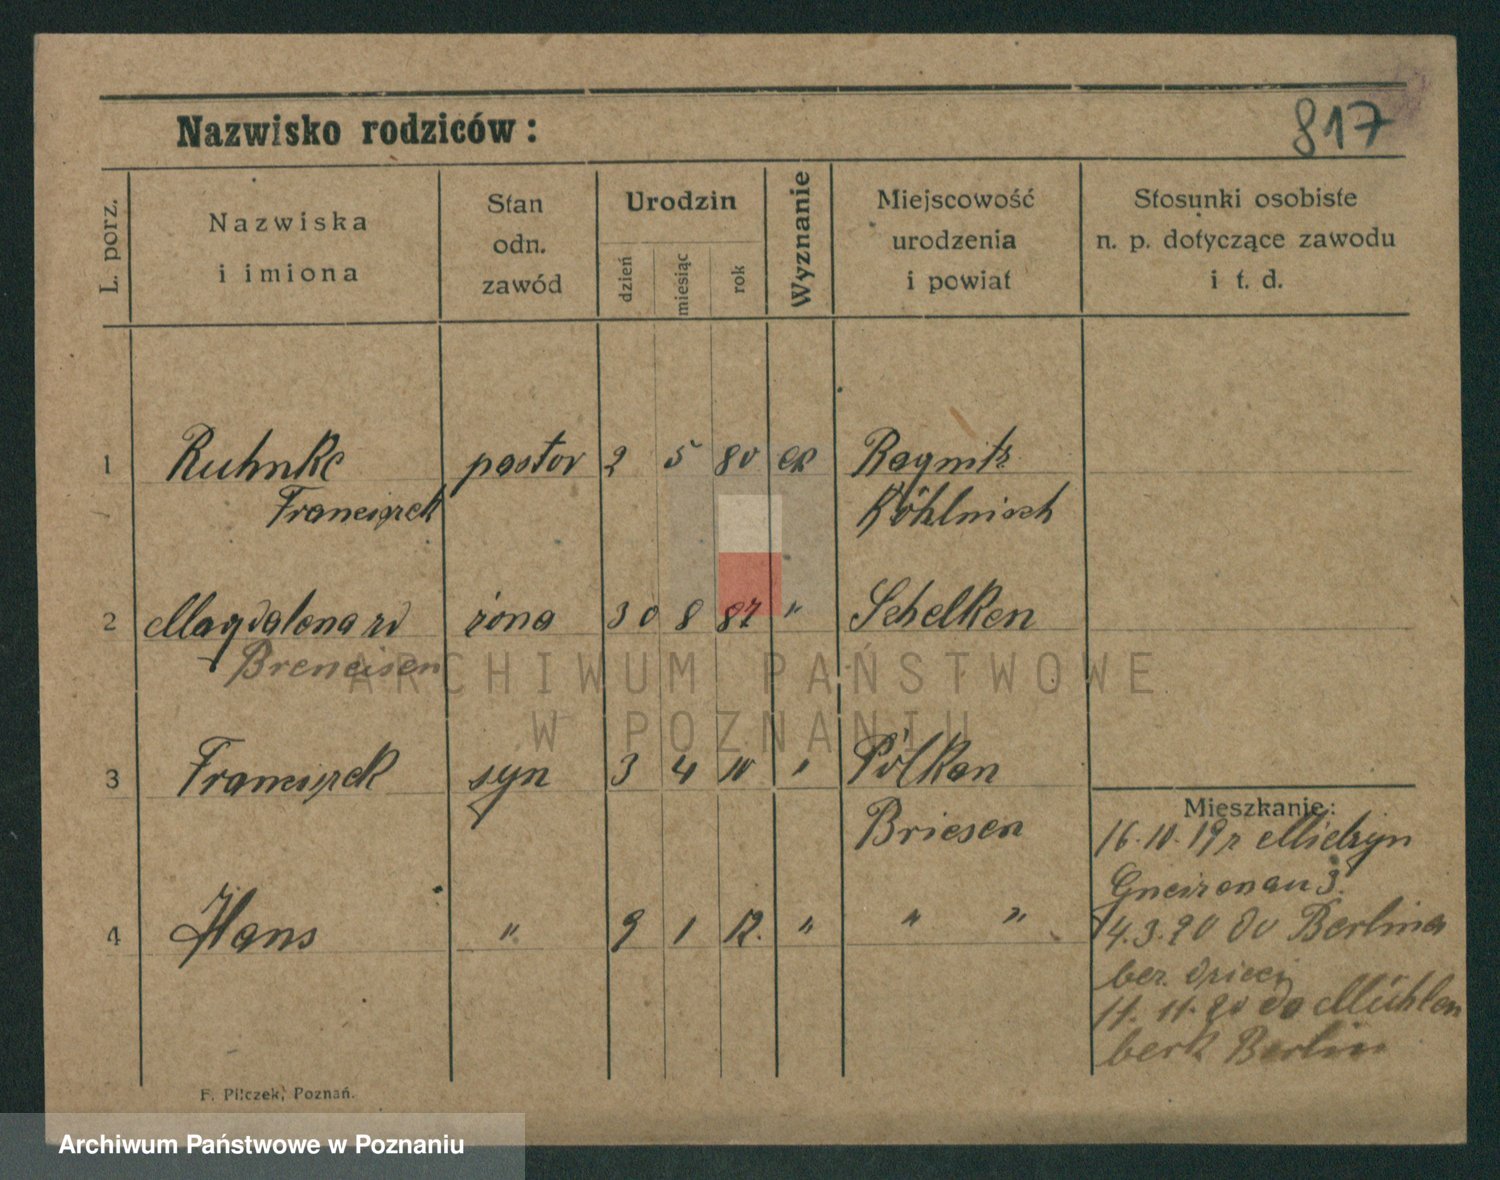 817
Nazwisko rodziców:
L. porz.
Nazwiska
i imiona
Stan
odn.
zawód
Urodzin
dzień
miesiąc
rok
Wyznanie
Miejscowość
urodzenia
i powiat
Stosunki osobiste
n. p. dotyczące zawodu
i t. d.
1 Ruhnke pastor 2 5 80 ew Ragnitz
Franciszek
2 Magdalena zd żona 30 8 82 " Schelken
Breneisen
3 Franciszek syn 3 4 10 " Pólkan
Briesen
4 Hans " 9 1 12. " " "
Mieszkanie:
16.10.19 r Mielżyn
Gneisenau 3.
14.3.20 do Berlina
bez dzieci
11.11.20 do Mühlen
berk Berlin
F. Pilczek, Poznań.
ARCHIWUM PAŃSTWOWE
W POZNANIU
Archiwum Państwowe w Poznaniu